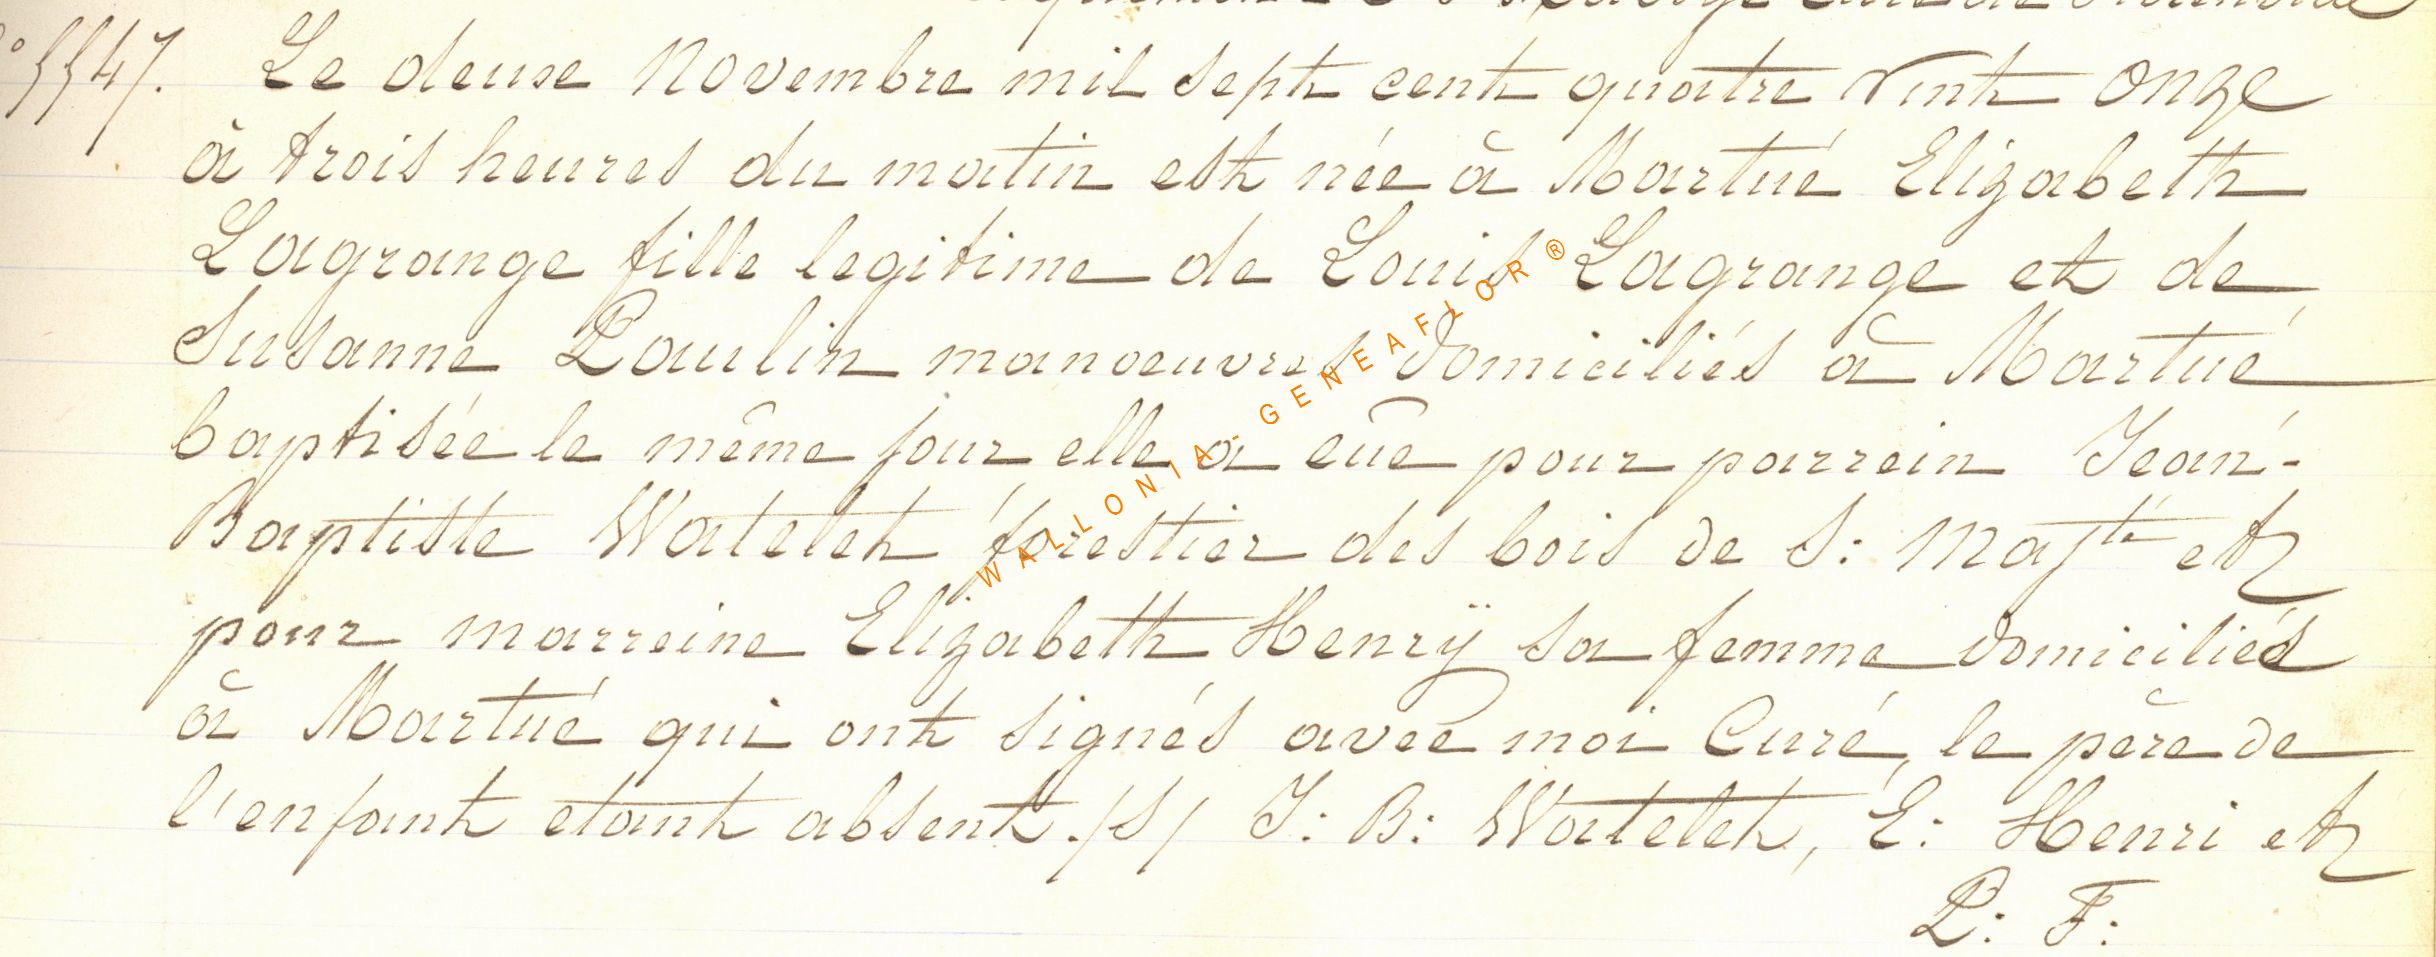 N° 5547. Le deuse Novembre mil sept cent quatre vint onze
à trois heures du matin est née à Martué Elizabeth
Lagrange fille legitime de Louis Lagrange et de
Susanne Paulin manoeuvres domiciliés à Martué
baptisée le même jour elle a eûe pour parrein Jean-
Baptiste Watelet forestier des bois de S: Majté et
pour marreine Elizabeth Henrÿ sa femme domiciliés
à Martué qui ont signés avec moi Curé, le père de
l'enfant etant absent. /S/ J: B: Watelet, E: Henri et
P: F:
WALLONIA - GENEAFLOR ®